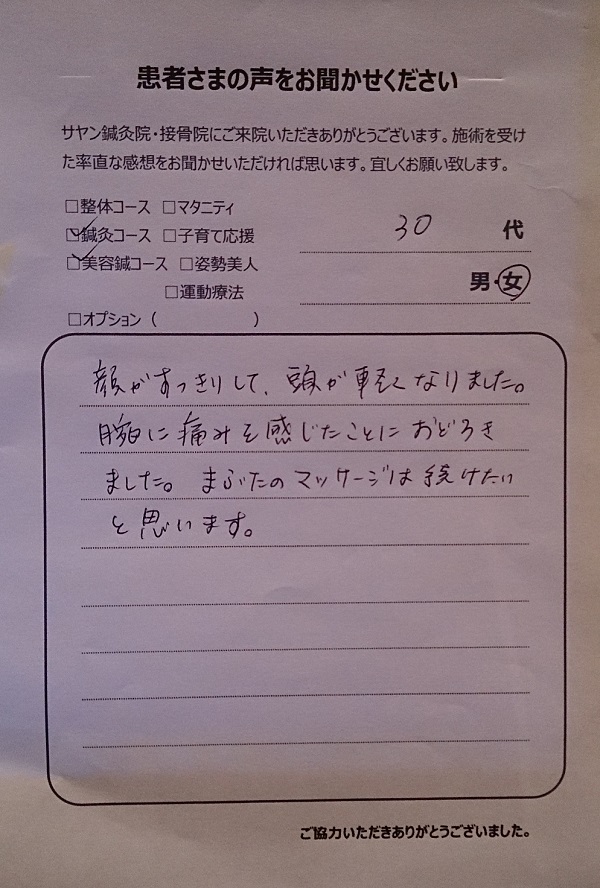 患者さまの声をお聞かせください
サヤン鍼灸院・接骨院にご来院いただきありがとうございます。施術を受け
た率直な感想をお聞かせいただければ思います。宜しくお願い致します。
□整体コース □マタニティ
☑鍼灸コース □子育て応援
☑美容鍼コース □姿勢美人
□運動療法
□オプション（ ）
30 代
男・女
顔がすっきりして、頭が軽くなりました。
胸に痛みを感じたことにおどろき
ました。まぶたのマッサージは続けたい
と思います。
ご協力いただきありがとうございました。